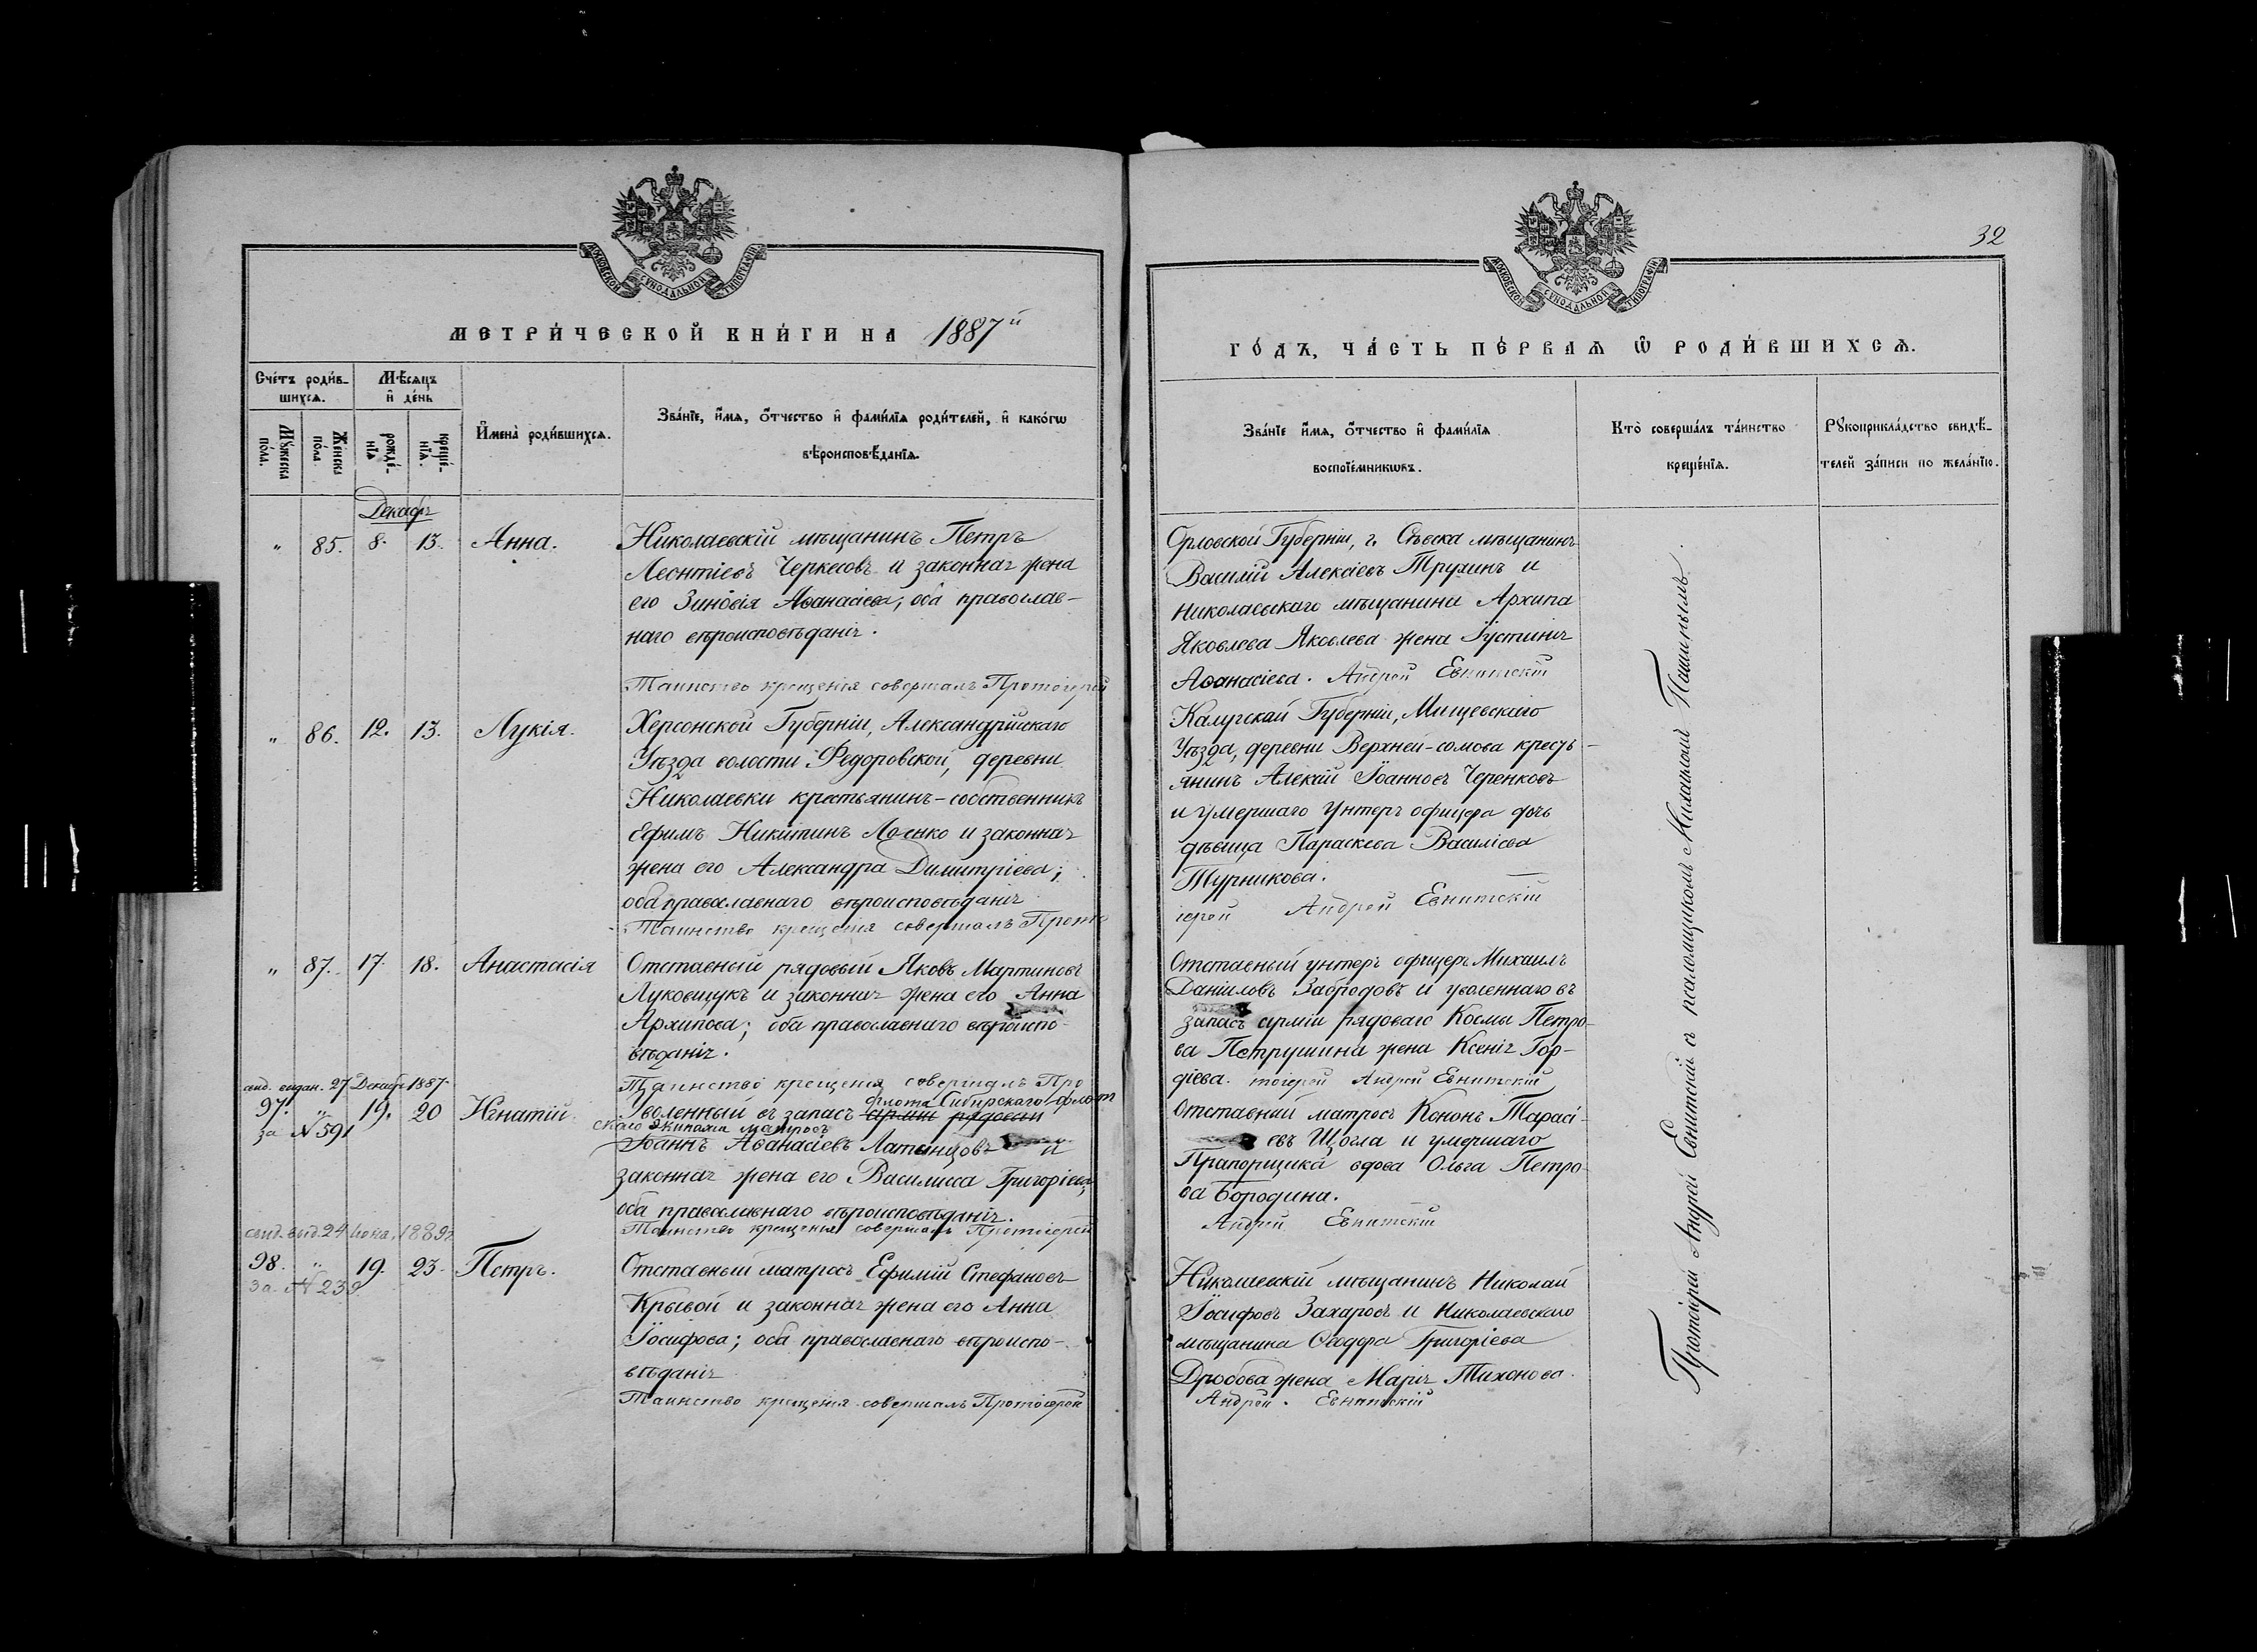 МОСКОВСКОЙ СУНОДАЛЬНОЙ ТИПОГРАФІИ
МЕТРИ́ЧЕСКОЙ КНИ́ГИ НА 1887й
Сче́тъ роди́в-
шихсѧ.
Мѣсяцъ
и де́нь
Мꙋжеска
по́ла.
Же́нска
по́ла
рожде́-
нїѧ
креще́-
нїѧ.
И҆мена̀ роди́вшихсѧ.
Зва́нїе, и҆́мѧ, ѻ҆́тчество и҆ фами́лїѧ роди́телей, и҆ како́гѡ
вѣроисповѣ́данїѧ.
Декабрь
„ 85. 8. 13. Анна.
Николаевскій мѣщанинъ Петръ
Леонтіевъ Черкесовъ и законная жена
его Зиновія Аѳанасіева; оба православ-
наго вѣроисповѣданія.
Таинство крещенія совершалъ Протоіерей
„ 86. 12. 13. Лукія.
Херсонской Губерніи, Александрійскаго
Уѣзда волости Федоровской, деревни
Николаевки крестьянинъ-собственникъ
Ефимъ Никитинъ и законная
жена его Александра Димитріева;
оба православнаго вѣроисповѣданія
Таинство крещенія совершалъ Прото
„ 87. 17. 18. Анастасія
Отставный рядовый Яковъ Мартиновъ
Луковщукъ и законная жена его Анна
Архипова; оба православнаго вѣроиспо-
вѣданія.
Таинство крещенія совершалъ Про
свид. выдан. 27 Декабр 1887.
97. „ 19. 20 Игнатій
за №591
флота Сибирскаго флот
Уволенный въ запасъ арміи рядовый
скаго Экипажа матросъ
Іоаннъ Аѳанасіевъ Латынцовъ и
законная жена его Василисса Григоріева;
оба православнаго вѣроисповѣданія.
Таинство крещенія совершалъ Протоіерей
свид. выд. 24 Іюна, 1889г
98. „ 19. 23. Петръ.
за №239
Отставный матросъ Ефимій Стефановъ
Крывой и законная жена его Анна
Іосифова; оба православнаго вѣроиспо-
вѣданія
Таинство крещенія совершалъ Протоіерей
32
МОСКОВСКОЙ СУНОДАЛЬНОЙ ТИПОГРАФІИ
ГО́ДЪ, ЧА́СТЬ ПЕ́РВАѦ Ѽ РОДИ́ВШИХСѦ.
Зва́нїе и҆́мѧ, ѻ҆́тчество и҆ фами́лїѧ
воспрїе́мникѡвъ.
Кто̀ соверша́лъ та́инство
креще́нїѧ.
Рꙋкоприкла́дство свидѣ́-
телей за́писи по жела́нїю.
Орловской Губерніи, г. Сѣвска мѣщанинъ
Василій Алексіевъ Трухинъ и
Николаевскаго мѣщанина Архипа
Яковлева Яковлева жена Іустинія
Аѳанасіева. Андрей Евнитскій
Калужской Губерніи, Мищевскаго
Уѣзда, деревни Верхней-сомова кресть-
янинъ Алексій Іоанновъ Черенковъ
и умершаго унтеръ офицера дочь
дѣвица Параскева Василіева
Турникова.
іерей Андрей Евнитскій
Отставный унтеръ офицеръ Михаилъ
Даніиловъ Забродовъ и уволеннаго въ
запасъ арміи рядоваго Космы Петро-
ва Петрушина жена Ксенія Гор-
діева. тоіерей Андрей Евнитскій
Отставный матросъ Кононъ Тарасі-
евъ Щогла и умершаго
Прапорщика вдова Ольга Петро-
ва Бородина.
Андрей Евнитскій
Николаевскій мѣщанинъ Николай
Іосифовъ Захаровъ и Николаевскаго
мѣщанина Ѳеодора Григоріева
Дробова жена Марія Тихонова.
Андрей. Евнитскій
Протоіерей Андрей Евнитскій съ псаломщикомъ Пашинымъ.